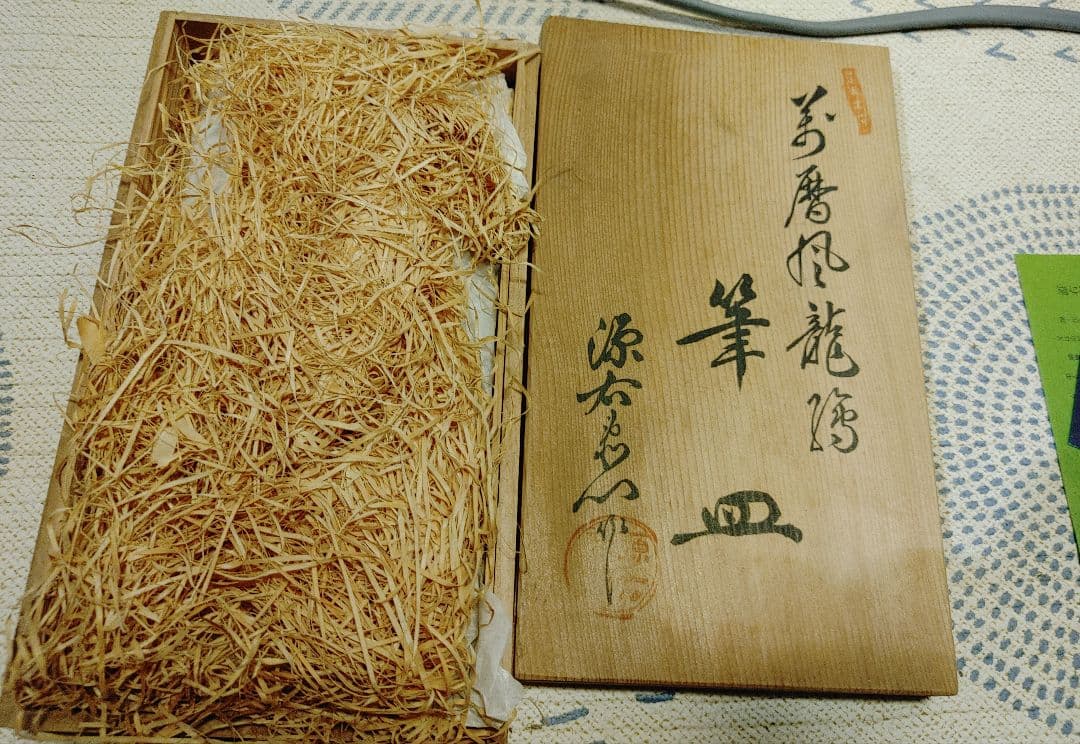 萬暦風龍繪
筆皿
源右衛門作